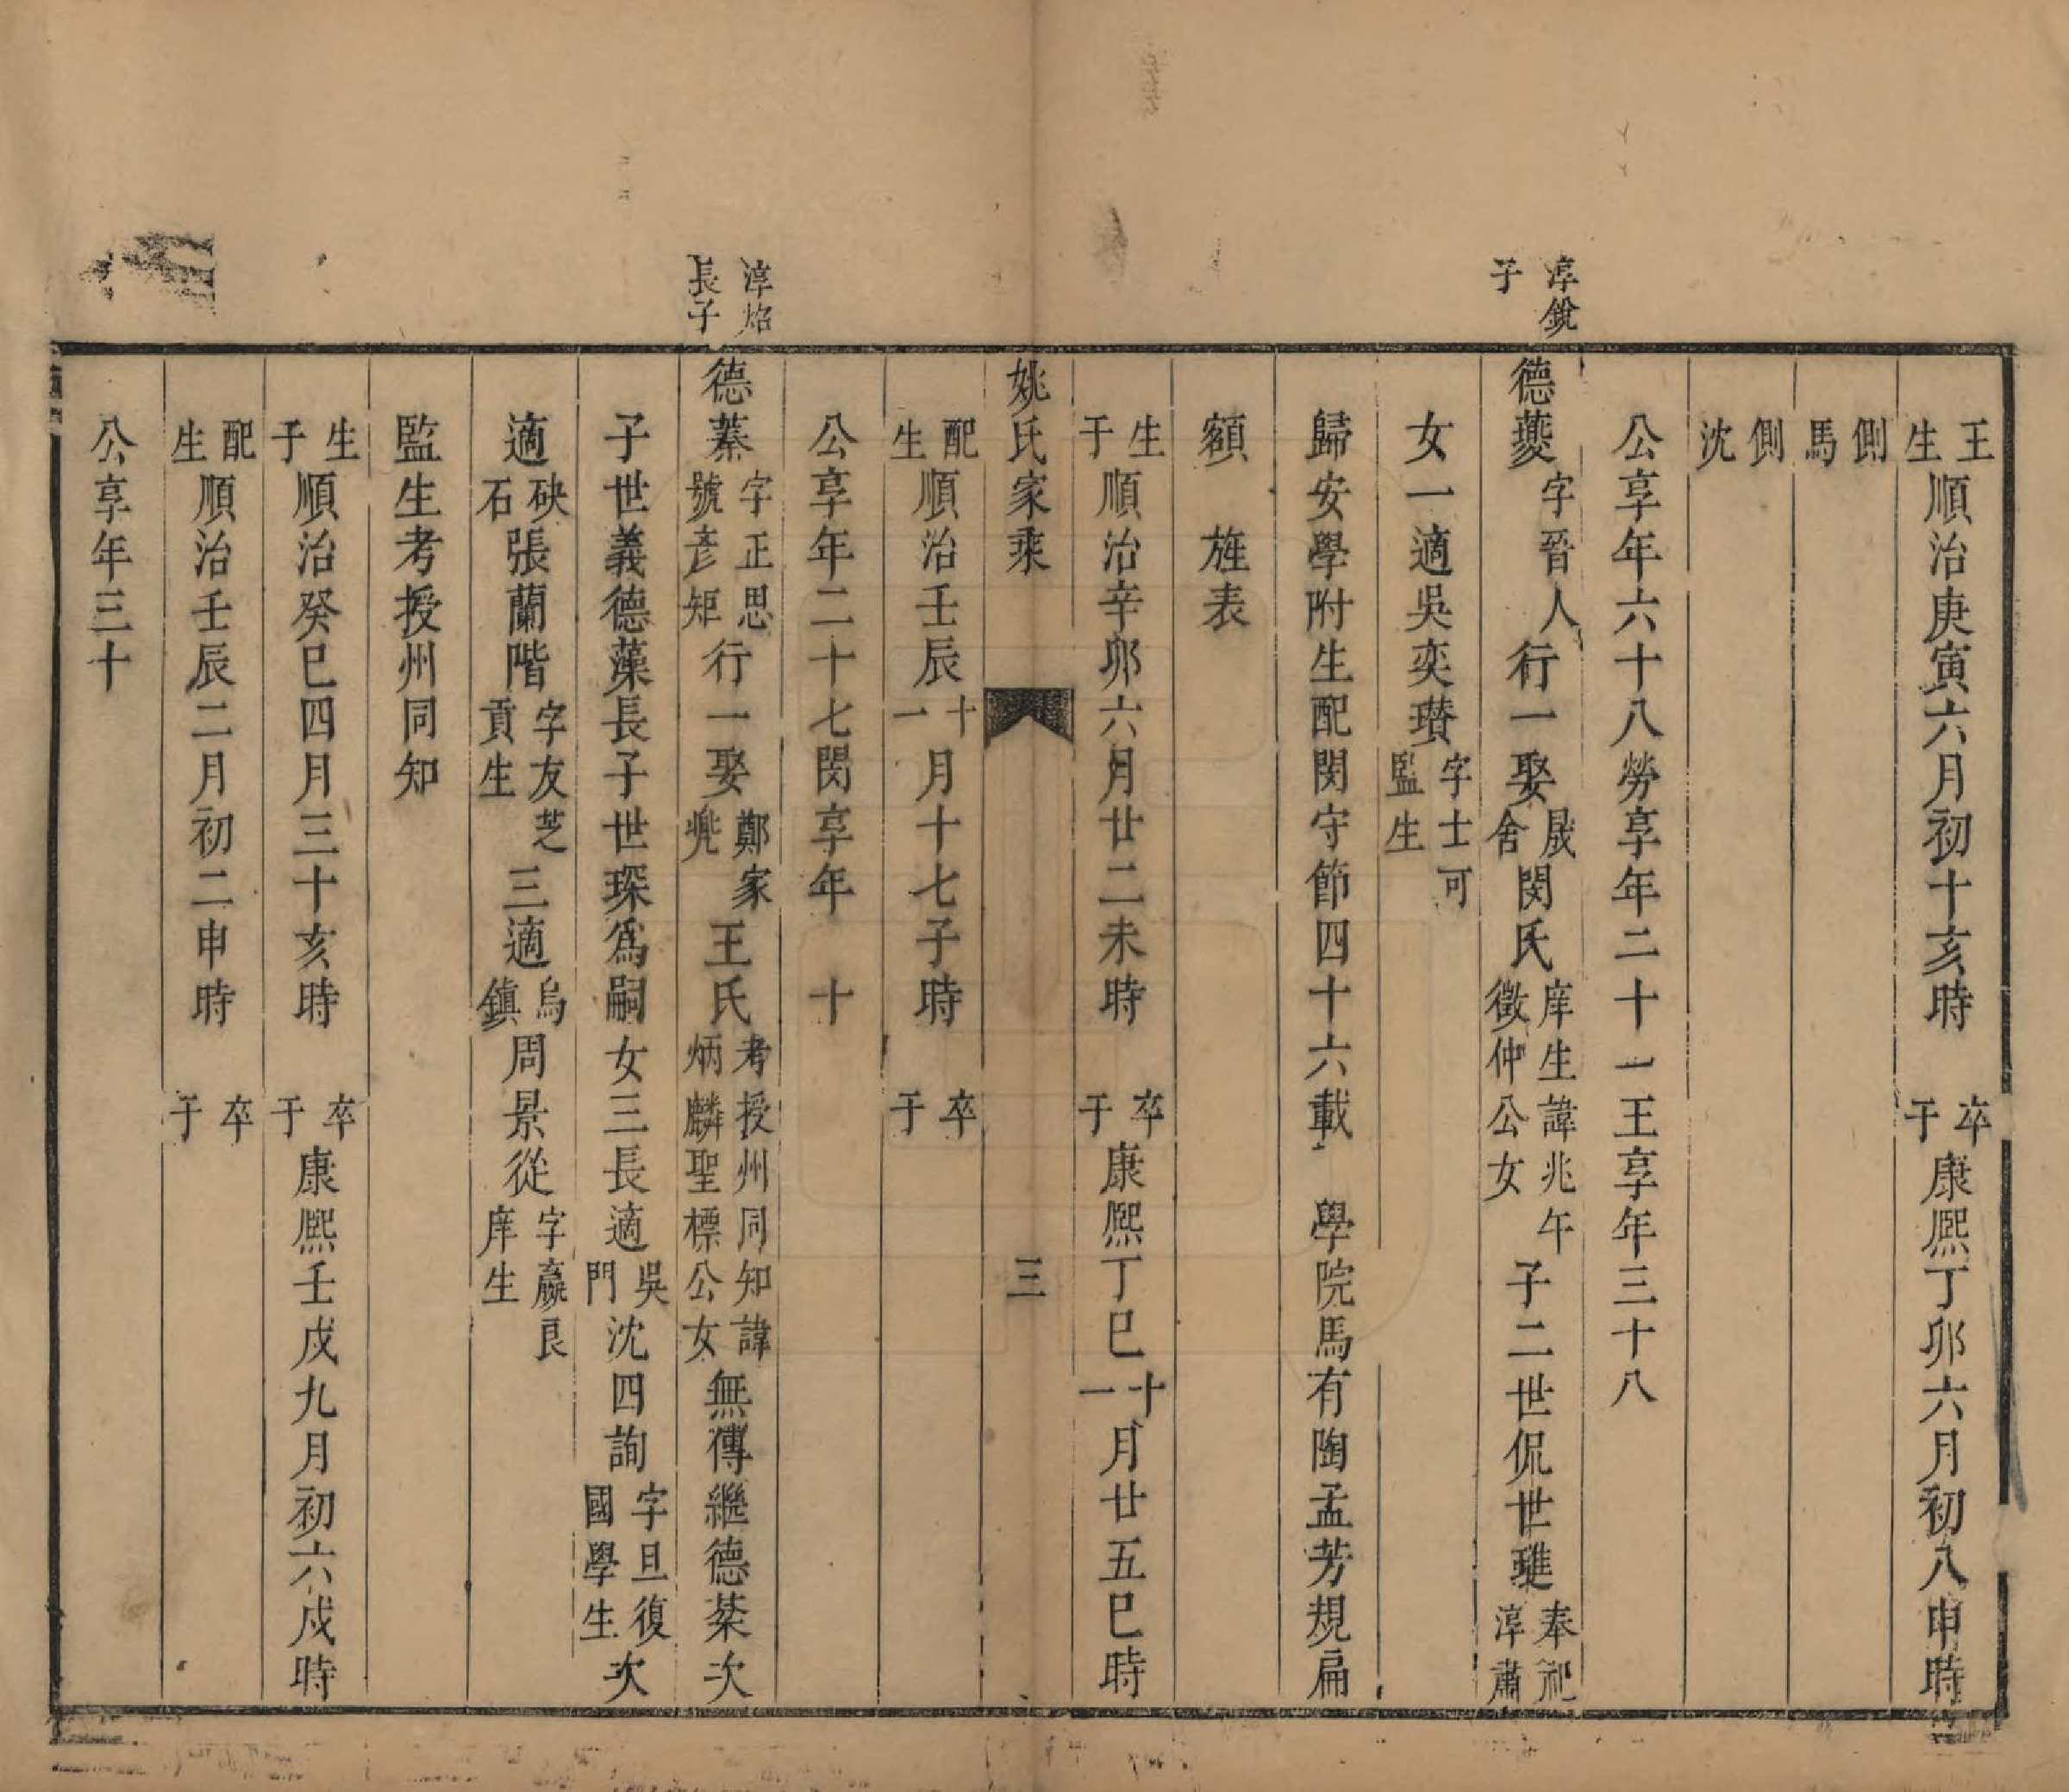 王生順治庚寅六月初十亥時　卒于康熙丁卯六月初八申時
側馬
側沈
公享年六十八勞享年二十一王享年三十八
淳銳子
德夔字晉人行一娶晟舍閔氏庠生諱兆午徵仲公女子二世侃世璡奉祀淳肅
女一適吳奕瓚字士可監生
歸安學附生配閔守節四十六載　學院馬有陶孟芳規扁
額　旌表
生于順治辛卯六月廿二未時　卒于康熙丁巳十一月廿五巳時
姚氏家乘　三
配生順治壬辰十一月十七子時　卒于
公享年二十七閔享年　十
淳焰長子
德蓁字正思號彥矩行一娶鄭家兠王氏考授州同知諱炳麟聖標公女無傳繼德棻次
子世義德藻長子世琛爲嗣女三長適吳門沈四詢字旦復國學生次
適硤石張蘭階字友芝貢生三適烏鎮周景從字嬴良庠生
監生考授州同知
生于順治癸巳四月三十亥時　卒于康熙壬戌九月初六戌時
配生順治壬辰二月初二申時　卒于
公享年三十